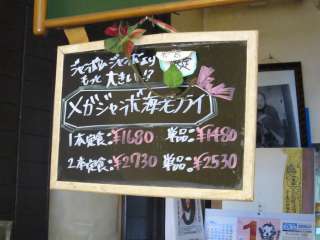 ジャンボジャンボより
もっと大きい!?
メガジャンボ海老フライ
1本定食:¥1680 単品:¥1480
2本定食:¥2730 単品:¥2530
1